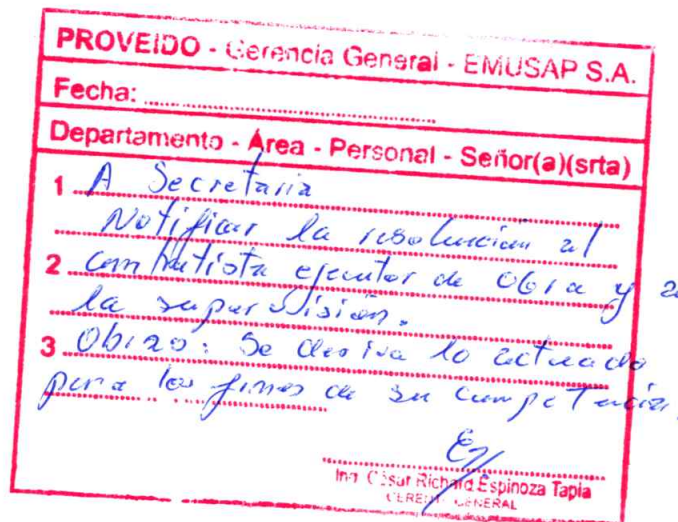 PROVEIDO - Gerencia General - EMUSAP S.A.
Fecha:
Departamento - Área - Personal - Señor(a)(srta)
1 A Secretaria
Notificar la resolución al
2 contratista ejecutor de Obra y a
la supervisión.
3 Obras: Se deriva lo actuado
para los fines de su competencia.
Ing. César Richard Espinoza Tapia
GERENTE GENERAL